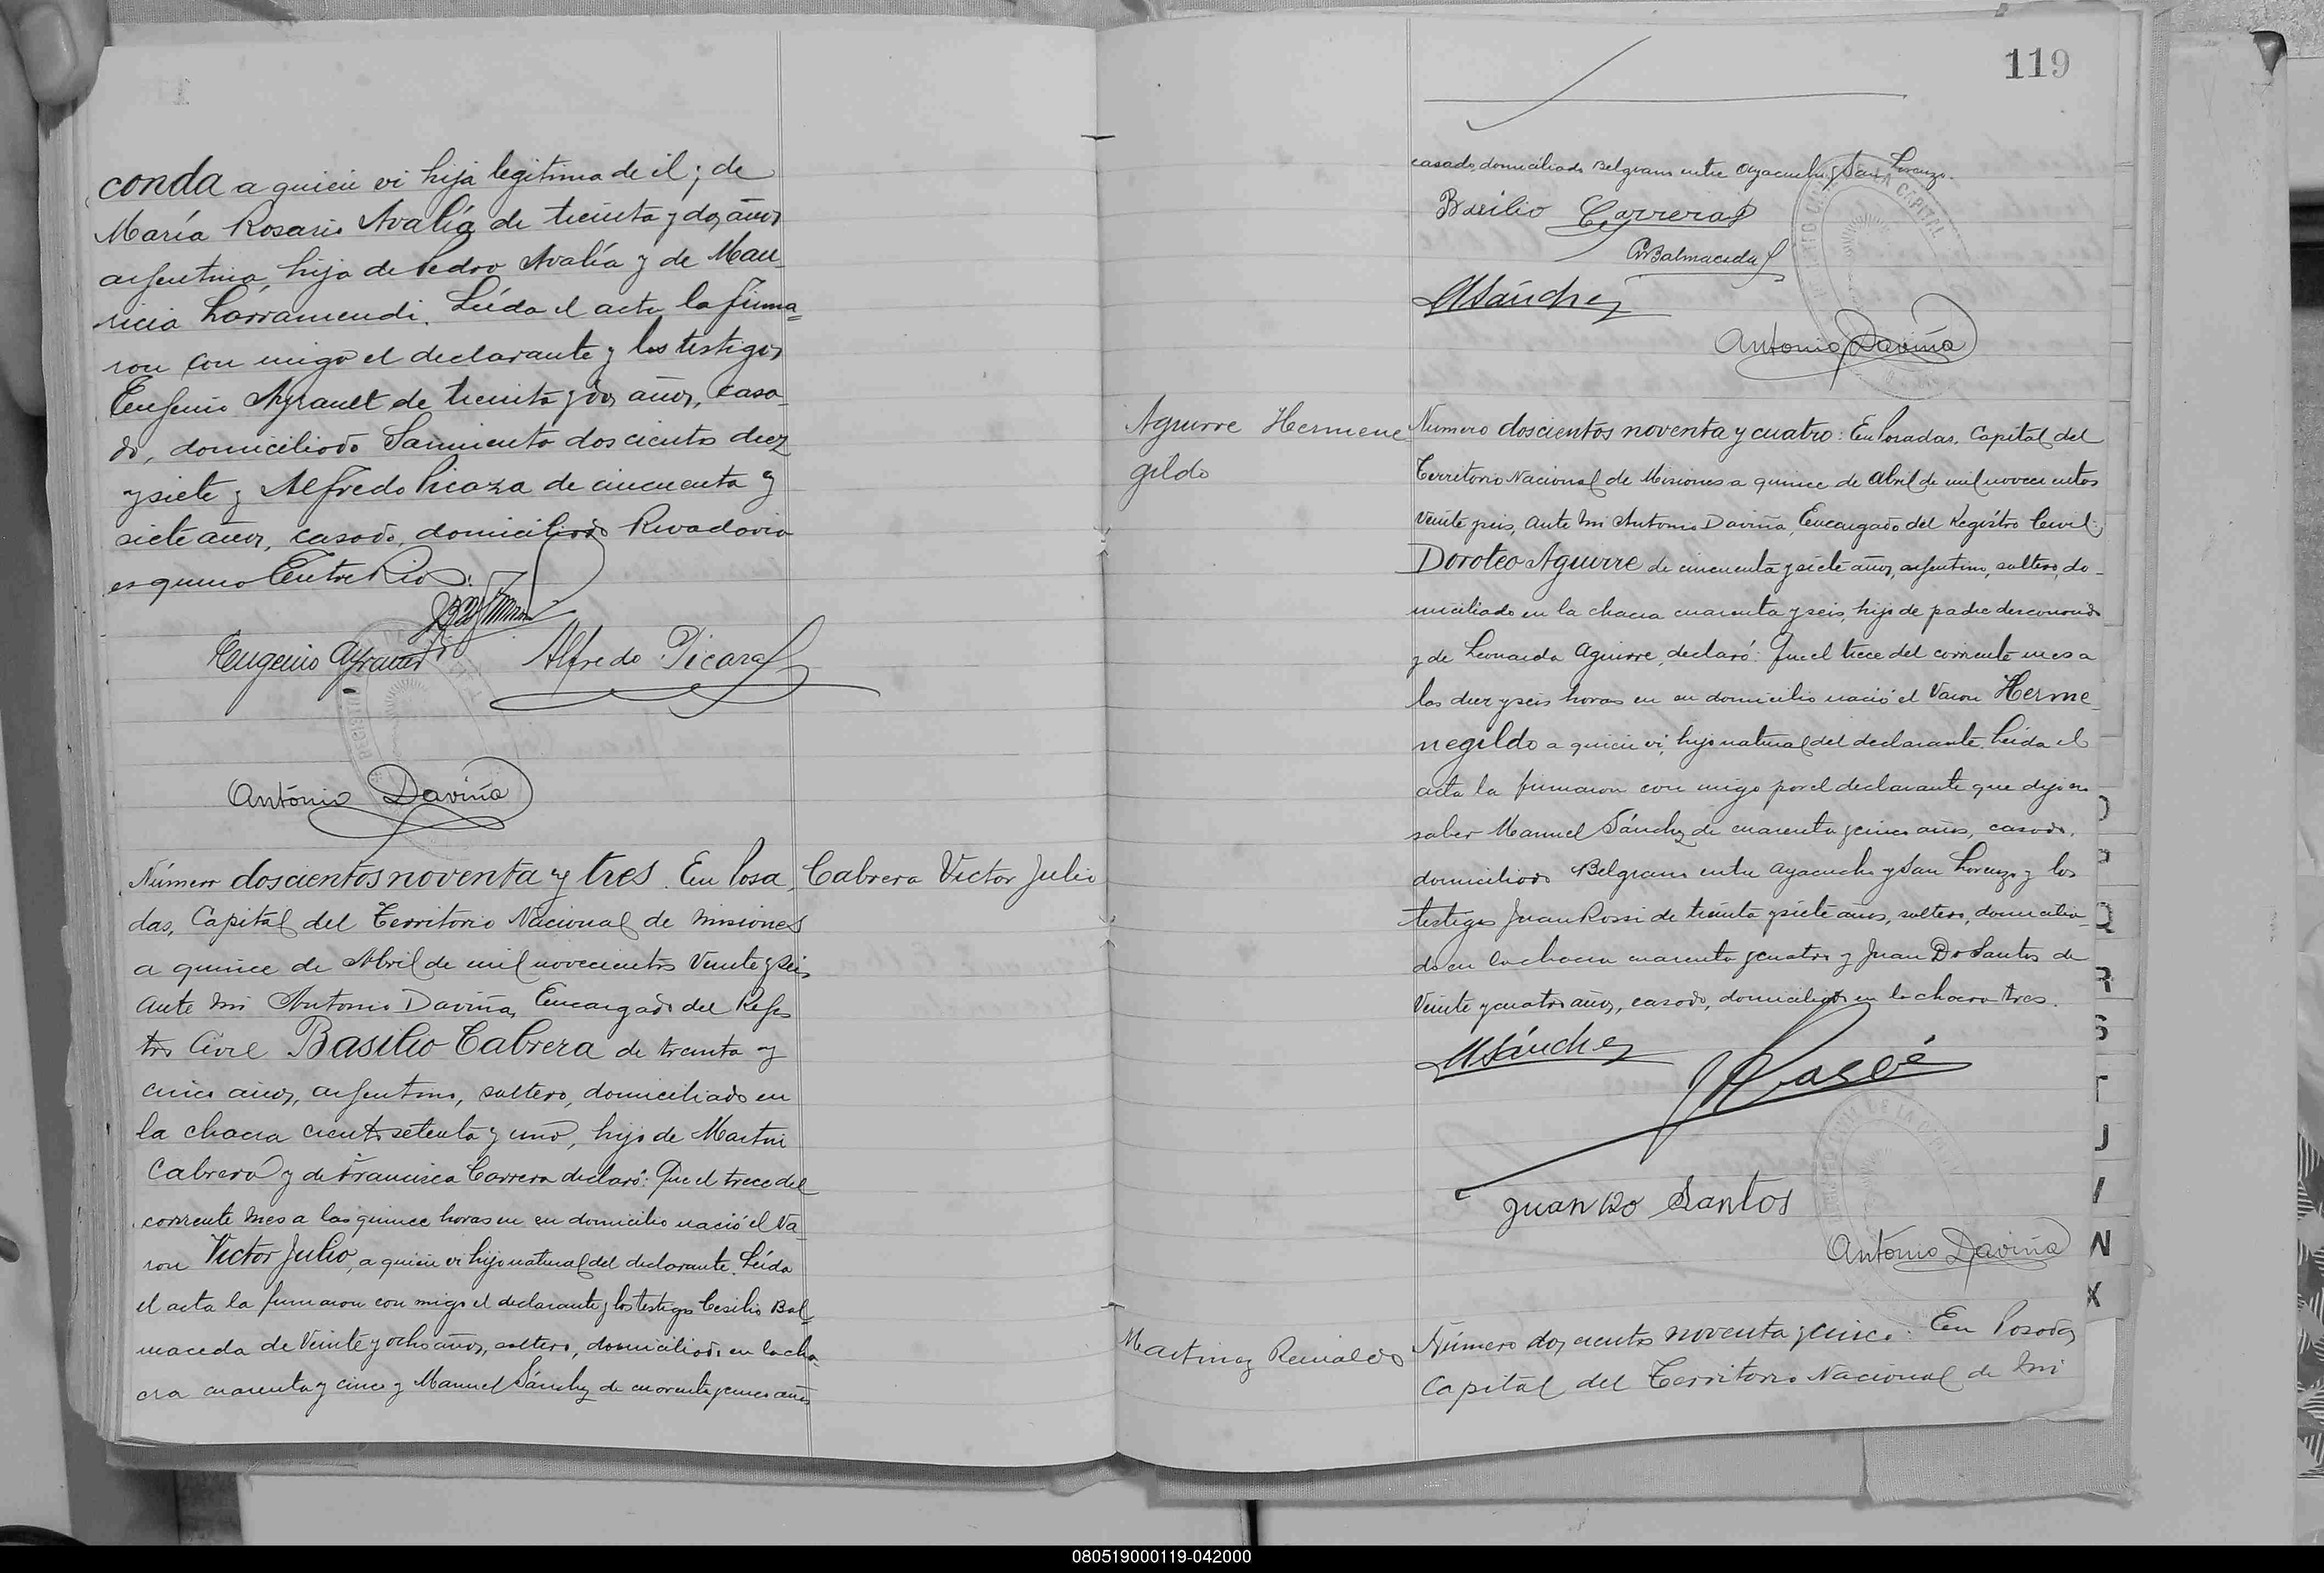 conda a quien vi hija legitima de él; de
María Rosario Avalía de treinta y dos años
argentina, hija de Pedro Avalía y de Mau-
ricia Larramendi. Leída el acta la firma=
ron con migo el declarante y los testigos
Eugenio Ayrault de treinta y dos años, casa-
do, domiciliado Sarmiento doscientos diez
y siete y Alfredo Picaza de cincuenta y
siete años, casado, domiciliado Rivadavia
esquina Entre Rios.
Eugenio Ayrault Alfredo Picaza
Antonio Daviña
Número doscientos noventa y tres. En Posa
Cabrera Victor Julio
das, Capital del Territorio Nacional de Misiones
a quince de Abril de mil novecientos Veinte y seis
Ante mi Antonio Daviña, Encargado del Regis
tro Civil Basilio Cabrera de treinta y
cinco años, argentino, soltero, domiciliado en
la chacra ciento setenta y uno, hijo de Martin
Cabrera y de Francisca Carrera declaró: Que el trece del
corriente mes a las quince horas en su domicilio nació el Va-
ron Victor Julio, a quien vi hijo natural del declarante. Leída
el acta la firmaron con migo el declarante y los testigos Cesilio Bal-
maceda de Veinte y ocho años, soltero, domiciliado en la cha-
cra cuarenta y cinco y Manuel Sánchez de cuarenta y cinco años
119
casado, domiciliado Belgrano entre Ayacucho y San Lorenzo.
Basilio Carreras
C. Balmaceda
MSánchez
Antonio Daviña
Aguirre Hermene
gildo
Número doscientos noventa y cuatro: En Posadas, Capital del
Territorio Nacional de Misiones a quince de Abril de mil novecientos
Veinte y seis, Ante Mi Antonio Daviña, Encargado del Registro Civil;
Doroteo Aguirre de cincuenta y siete años, argentino, soltero, do-
miciliado en la chacra cuarenta y seis, hijo de padre desconocido
y de Leonarda Aguirre, declaró: Que el trece del corriente mes a
las diez y seis horas en su domicilio nació el Varon Herme-
negildo a quien vi, hijo natural del declarante. Leída el
acta la firmaron con migo por el declarante que dijo no
saber Manuel Sánchez de cuarenta y cinco años, casado,
domiciliado Belgrano entre Ayacucho y San Lorenzo y los
testigos Juan Rossi de treinta y siete años, soltero, domicilia-
do en la chacra cuarenta y cuatro y Juan Do Santos de
Veinte y cuatro años, casado, domiciliado en la chacra tres.
MSánchez
Juan Do Santos
Antonio Daviña
Martinez Reinaldo
Número doscientos noventa y cinco. En Posadas
Capital del Territorio Nacional de Mi
P
Q
R
S
T
X
080519000119-042000